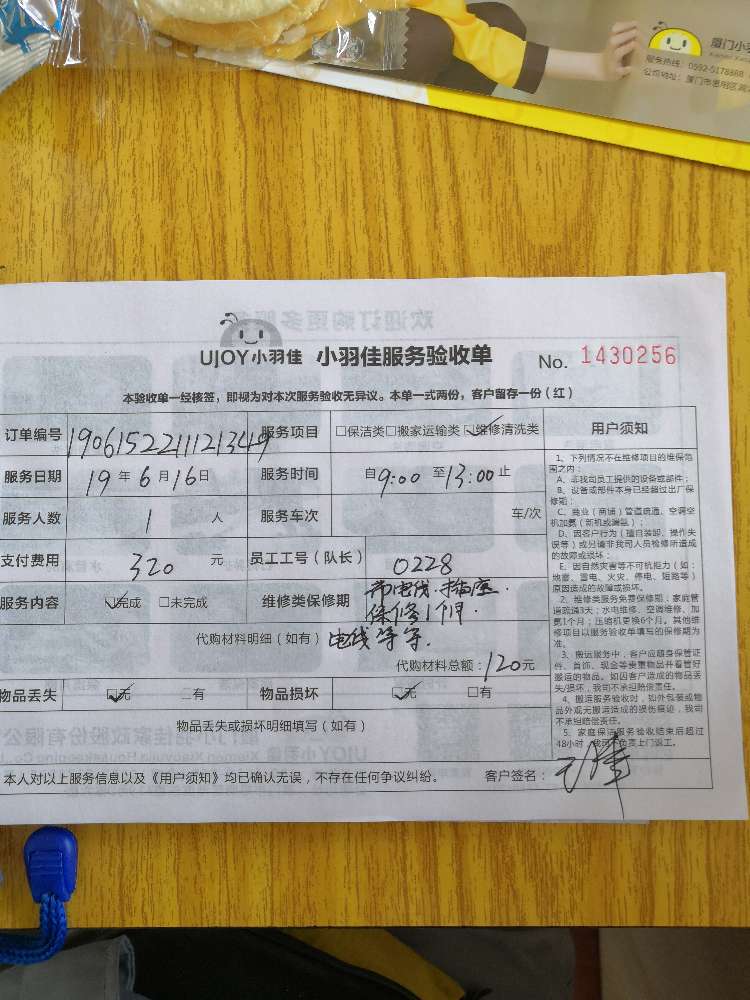 厦门小
服务热线：0592-5178868
UJOY小羽佳 小羽佳服务验收单 No. 1430256
本验收单一经核签，即视为对本次服务验收无异议。本单一式两份，客户留存一份（红）
订单编号 1906152211121349 服务项目 □保洁类□搬家运输类☑维修清洗类
服务日期 19 年 6 月 16 日 服务时间 自 9:00 至 13:00 止
服务人数 1 人 服务车次 车/次
支付费用 320 元 员工工号（队长） 0228
服务内容 ☑完成 □未完成 维修类保修期 布电线、插座.
保修1个月.
代购材料明细（如有） 电线等等.
代购材料总额：120元
物品丢失 ☑无 □有 物品损坏 ☑无 □有
物品丢失或损坏明细填写（如有）
本人对以上服务信息以及《用户须知》均已确认无误，不存在任何争议纠纷。 客户签名：
用户须知
1、下列情况不在维修项目的维保范
围之内：
A、非我司员工提供的设备或部件；
B、设备或部件本身已经超过出厂保
修期；
C、商业（商铺）管道疏通、空调空
机加氟（新机或漏氟）；
D、因客户行为（擅自装卸、操作失
误等）或另请非我司人员检修所造成
的故障或损坏；
E、因自然灾害等不可抗拒力（如：
地震、雷电、火灾、停电、短路等）
原因造成的故障或损坏。
2、维修类服务免费保修期：家庭管
道疏通3天；水电维修、空调维修、加
氟1个月；压缩机更换6个月。其他维
修项目以服务验收单填写的保修期为
准。
3、搬运服务中，客户应随身保管证
件、首饰、现金等贵重物品并看管好
搬运的物品。如因客户造成的物品丢
失/损坏，我司不承担赔偿责任。
4、搬运服务验收时，如外包装或物
品外观无搬运造成的损伤痕迹，我司
不承担赔偿责任。
5、家庭保洁服务验收结束后超过
48小时，我司不负责上门返工。